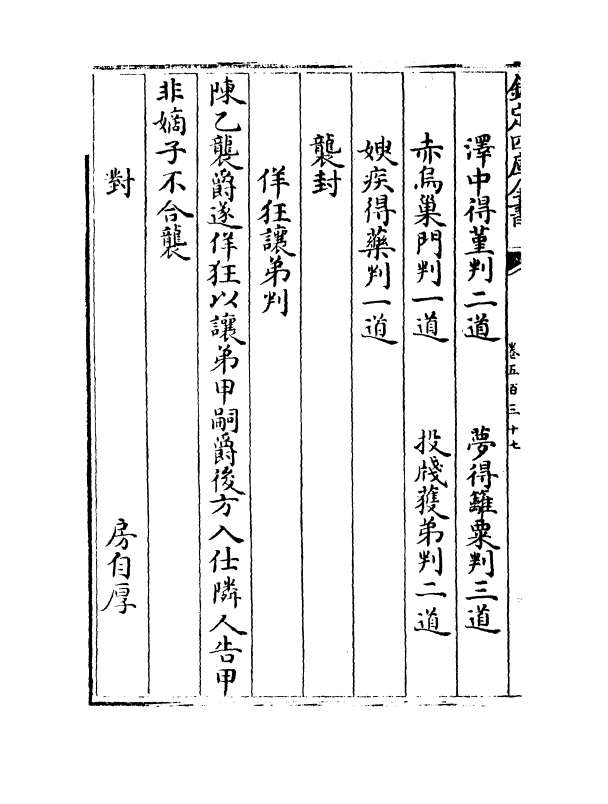 欽定四庫全書
卷五百三十七
澤中得堇判二道　夢得籬粟判三道
赤烏巢門判一道　投牋獲弟判二道
嫂疾得藥判一道
襲封
佯狂讓弟判
陳乙襲爵遂佯狂以讓弟甲嗣爵後方入仕隣人告甲
非嫡子不合襲
對　房自厚